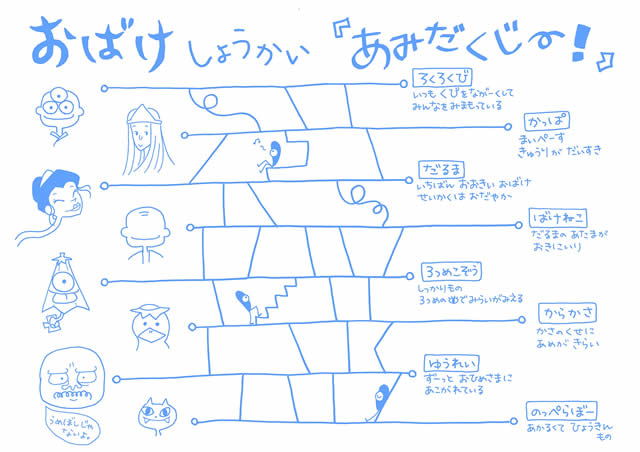 おばけ しょうかい 『あみだくじ〜!』
ろくろくび
いつも くびをながーくして
みんなをみまもっている
かっぱ
まいぺーす
きゅうりが だいすき
だるま
いちばん おおきい おばけ
せいかくは おだやか
ばけねこ
だるまの あたまが
おきにいり
3つめこぞう
しっかりもの
3つめの目でみらいがみえる
からかさ
かさのくせに
あめが きらい
ゆうれい
ずーっと おひめさまに
あこがれている
のっぺらぼー
あかるくて ひょうきん
もの
うめぼしじゃ
ないよ。